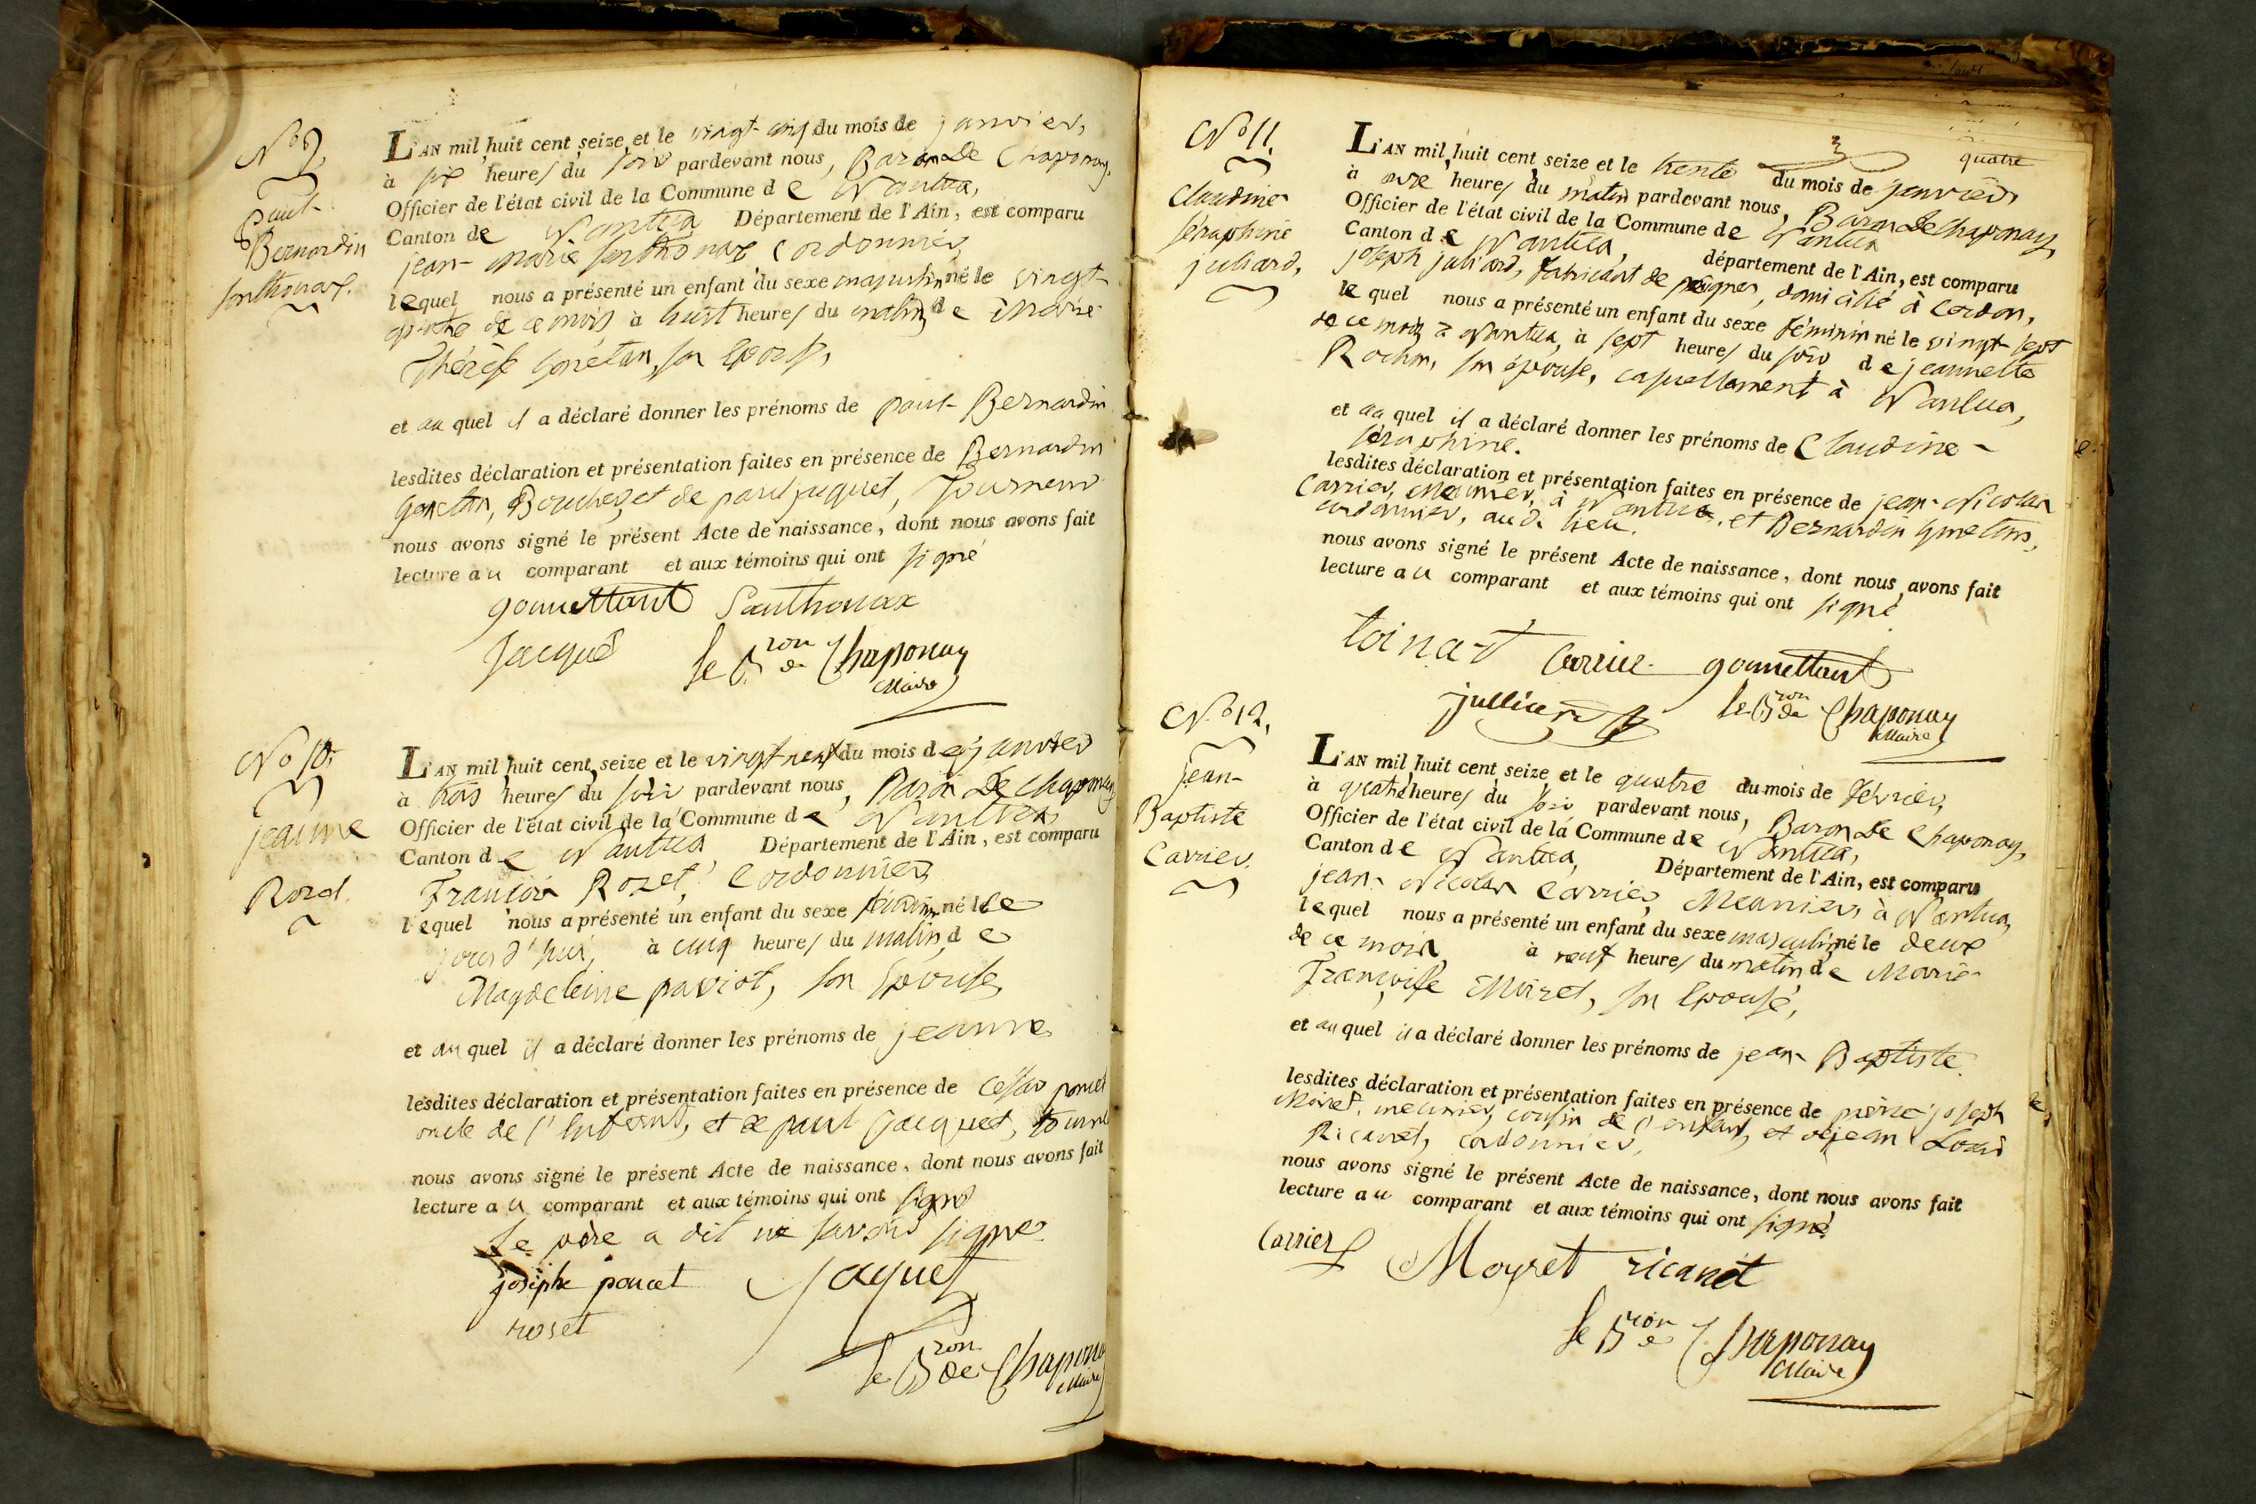 N.o 9.
Paul-
Bernardin
Santhonax.
L'AN mil huit cent seize et le vingt cinq du mois de janvier,
à six heures du soir pardevant nous, Baron De Chaponay,
Officier de l'état civil de la Commune de Nantua,
Canton de Nantua Département de l'Ain, est comparu
jean-Marie Santhonax Cordonnier
lequel nous a présenté un enfant du sexe masculin né le vingt
quatre de ce mois à huit heures du matin de Marie
Thérèse Gonetan, son Epouse,
et au quel il a déclaré donner les prénoms de paul-Bernardin
lesdites déclaration et présentation faites en présence de Bernardin
Boucher, et de paul jaquet, Tourneur
nous avons signé le présent Acte de naissance, dont nous avons fait
lecture au comparant et aux témoins qui ont signé
gonnettant Santhonax
Jacquet le Bron de Chaponay
Maire
N.o 10.
jeanne
Rozet.
L'AN mil huit cent seize et le vingt neuf du mois de janvier
à trois heures du soir pardevant nous, Baron De Chaponay,
Officier de l'état civil de la Commune de Nantua
Canton de Nantua Département de l'Ain, est comparu
François Rozet, Cordonnier,
lequel nous a présenté un enfant du sexe féminin né le ce
jourd'hui, à cinq heures du matin, de
Magdeleine paviot, son Epouse,
et au quel il a déclaré donner les prénoms de jeanne
lesdites déclaration et présentation faites en présence de poncet
oncle de l'Enfant, et de paul jacquet,
nous avons signé le présent Acte de naissance, dont nous avons fait
lecture au comparant et aux témoins qui ont signé
Le père a dit ne savoir signer.
josephe poncet Jaquet
roset
le Bron de Chaponay
Maire
quatre
N.o 11.
Claudine-
Séraphine
juliard,
L'AN mil huit cent seize et le trente du mois de janvier,
à onze heures du matin pardevant nous, Baron De Chaponay
Officier de l'état civil de la Commune de Nantua
Canton de Nantua, département de l'Ain, est comparu
joseph juliard, fabricant de peignes, domicilié à Cerdon,
lequel nous a présenté un enfant du sexe féminin né le vingt sept
de ce mois à Nantua, à sept heures du soir de jeannette
Rochon, son épouse, casuellement à Nantua,
et au quel il a déclaré donner les prénoms de Claudine-
Séraphine.
lesdites déclaration et présentation faites en présence de jean-Nicolas
Carrier, Meunier, à Nantua, et Bernardin
cordonnier, audt lieu.
nous avons signé le présent Acte de naissance, dont nous avons fait
lecture au comparant et aux témoins qui ont signé
toinat Carrier gonnettant
julliard le Bron de Chaponay
Maire
N.o 12.
jean-
Baptiste
Carrier.
L'AN mil huit cent seize et le quatre du mois de février,
à quatre heures du soir pardevant nous, Baron De Chaponay,
Officier de l'état civil de la Commune de Nantua,
Canton de Nantua, Département de l'Ain, est comparu
jean-Nicolas Carrier, Meunier, à Nantua,
lequel nous a présenté un enfant du sexe masculin né le deux
de ce mois, à neuf heures du matin de Marie
Françoise Moiret, son Epouse,
et au quel il a déclaré donner les prénoms de jean Baptiste.
lesdites déclaration et présentation faites en présence de pierre joseph
Moiret, meunier, cousin de l'enfant, et de jean Louis
Ricanet, cordonnier,
nous avons signé le présent Acte de naissance, dont nous avons fait
lecture au comparant et aux témoins qui ont signé
Carrier Moyret ricanet
le Bron de Chaponay
Maire